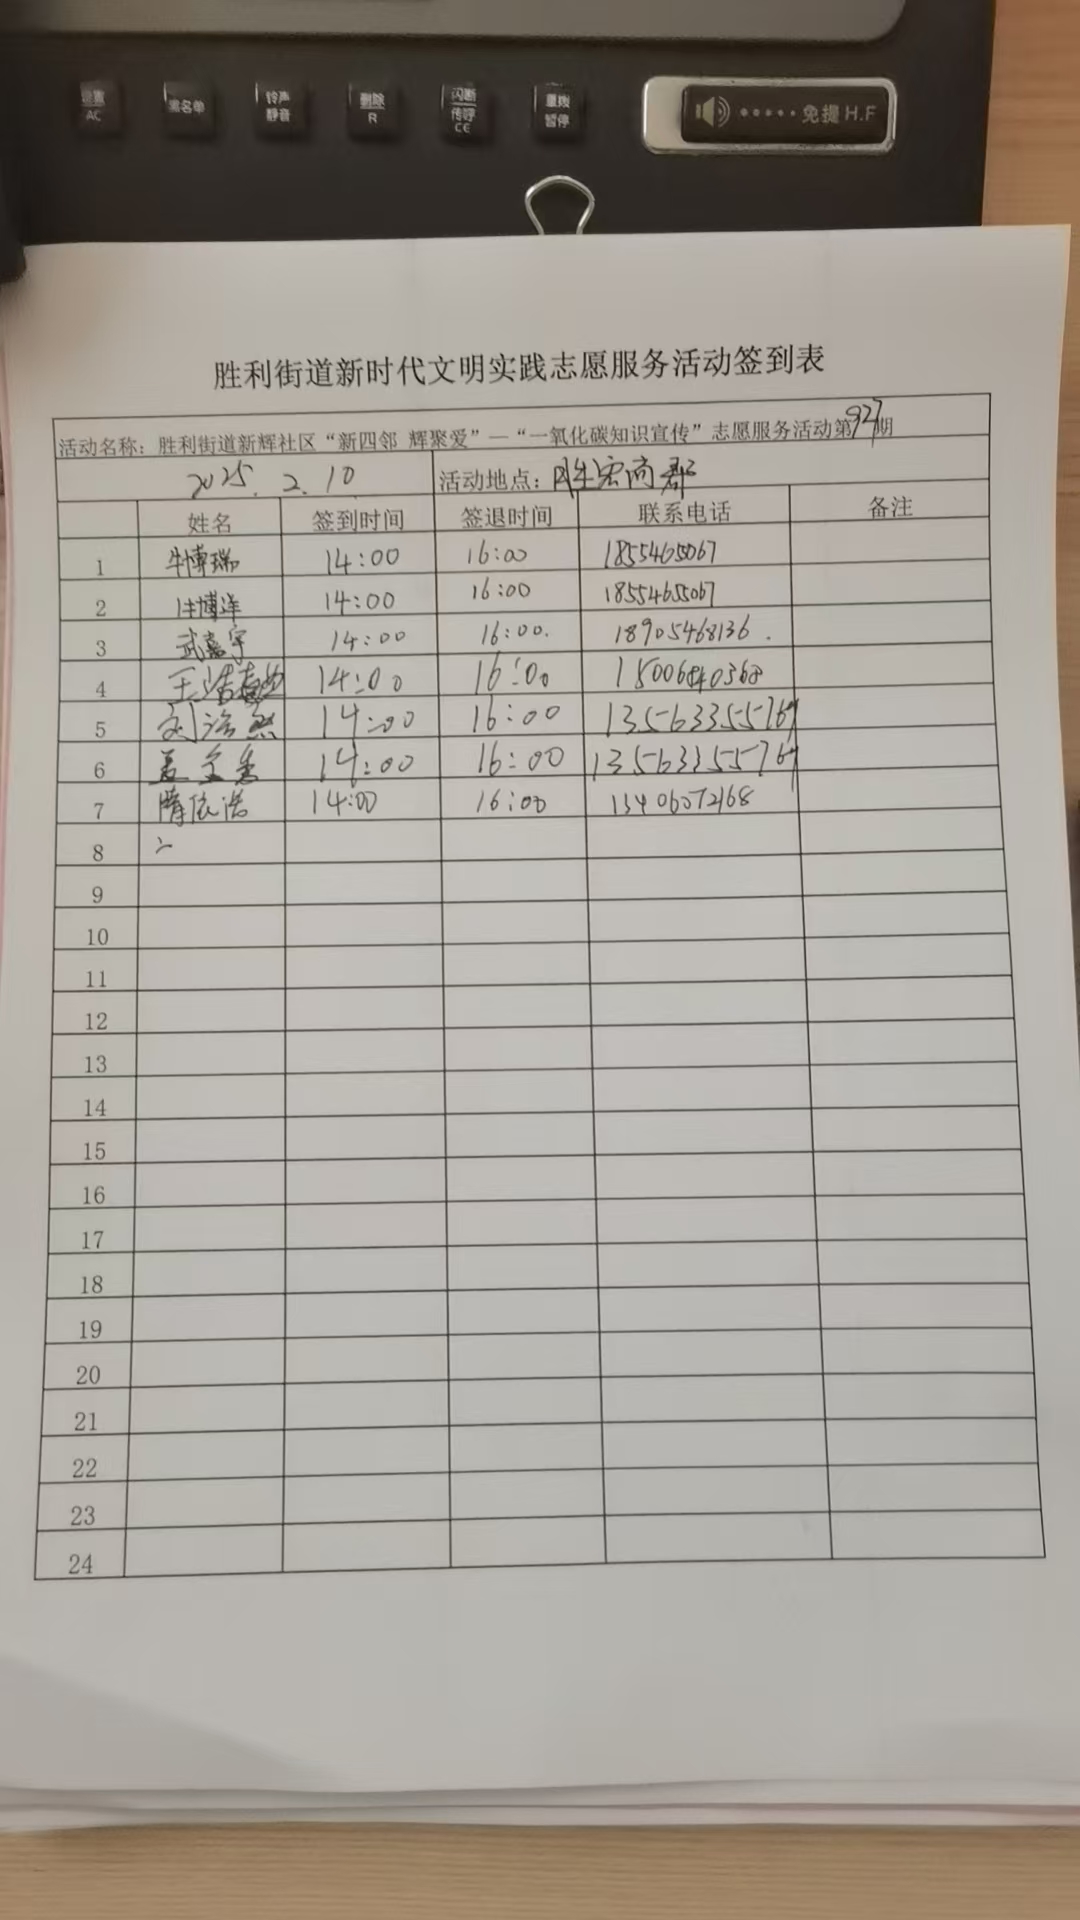 设置 AC
黑名单
铃声 静音
删除 R
闪断 传呼 CE
重拨 暂停
免提 H.F
胜利街道新时代文明实践志愿服务活动签到表
活动名称：胜利街道新辉社区“新四邻 辉聚爱”—“一氧化碳知识宣传”志愿服务活动第927期
2025.2.10 活动地点：胜宏商都
姓名 签到时间 签退时间 联系电话 备注
1 牛博瑞 14:00 16:00 18554655067
2 牛博洋 14:00 16:00 18554655067
3 武嘉宇 14:00 16:00. 18905468136.
4 14:00 16:00 15006840368
5 刘浩然 14:00 16:00 13563355769
6 14:00 16:00 13563355769
7 隋依诺 14:00 16:00 13406072168
8
9
10
11
12
13
14
15
16
17
18
19
20
21
22
23
24